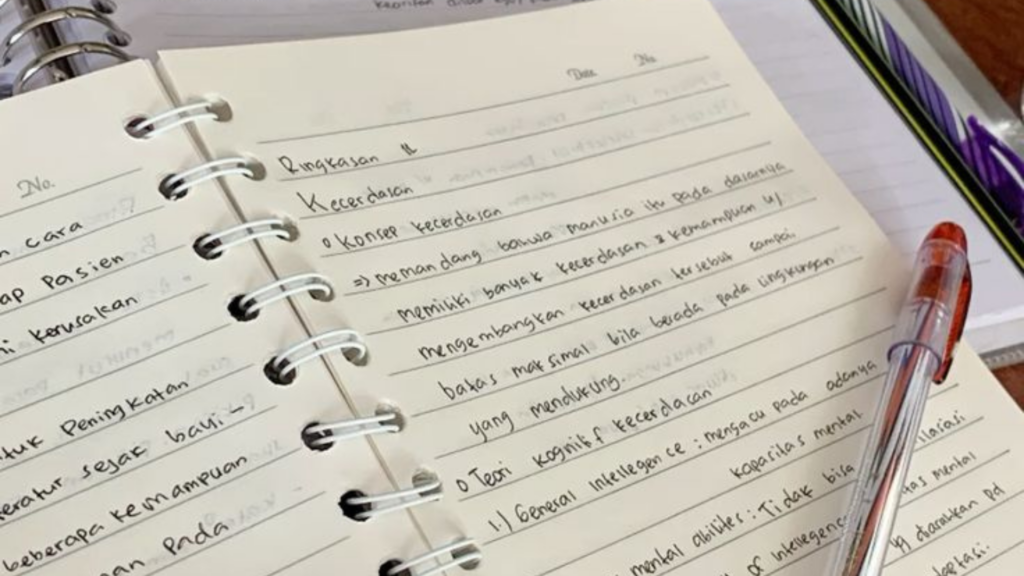 No.
cara
ap Pasien
kerusakan
tuk Peningkatan
eratur sejak bayi
beberapa kemampuan
an pada
Date No
Ringkasan
Kecerdasan
o Konsep kecerdasan
=> memandang bahwa manusia itu pada dasarnya
memiliki banyak kecerdasan & kemampuan u/
mengembangkan kecerdasan tersebut sampai
batas maksimal bila berada pada lingkungan
yang mendukung.
o Teori kognitif kecerdasan
1.) General Intellegence : mengacu pada adanya
kapasitas mental.
mental abilities : Tidak bisa
of intellegenc
tas mental
diaratkan pd
daptasi.